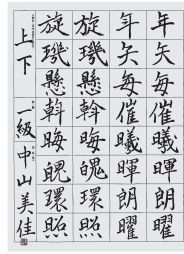 年矢毎催曦暉朗曜
年矢毎催曦暉朗曜
旋璣懸斡晦魄環照
旋璣懸斡晦魄環照
上下 一級 中山美佳